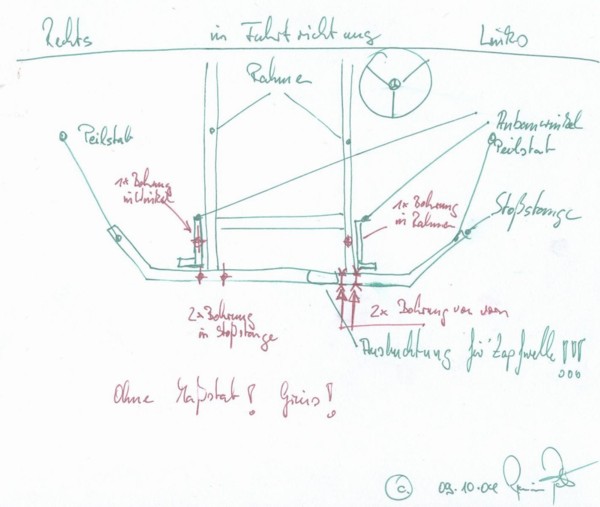 Rechts in Fahrtrichtung Links
Rahmen
Peilstab
Anbauwinkel
Peilstab
1x Bohrung
in Winkel
1x Bohrung
in Rahmen
Stoßstange
2x Bohrung
in Stoßstange
2x Bohrung von vorn
Ausbuchtung für Zapfwelle !!!
Ohne Maßstab! Gruß!